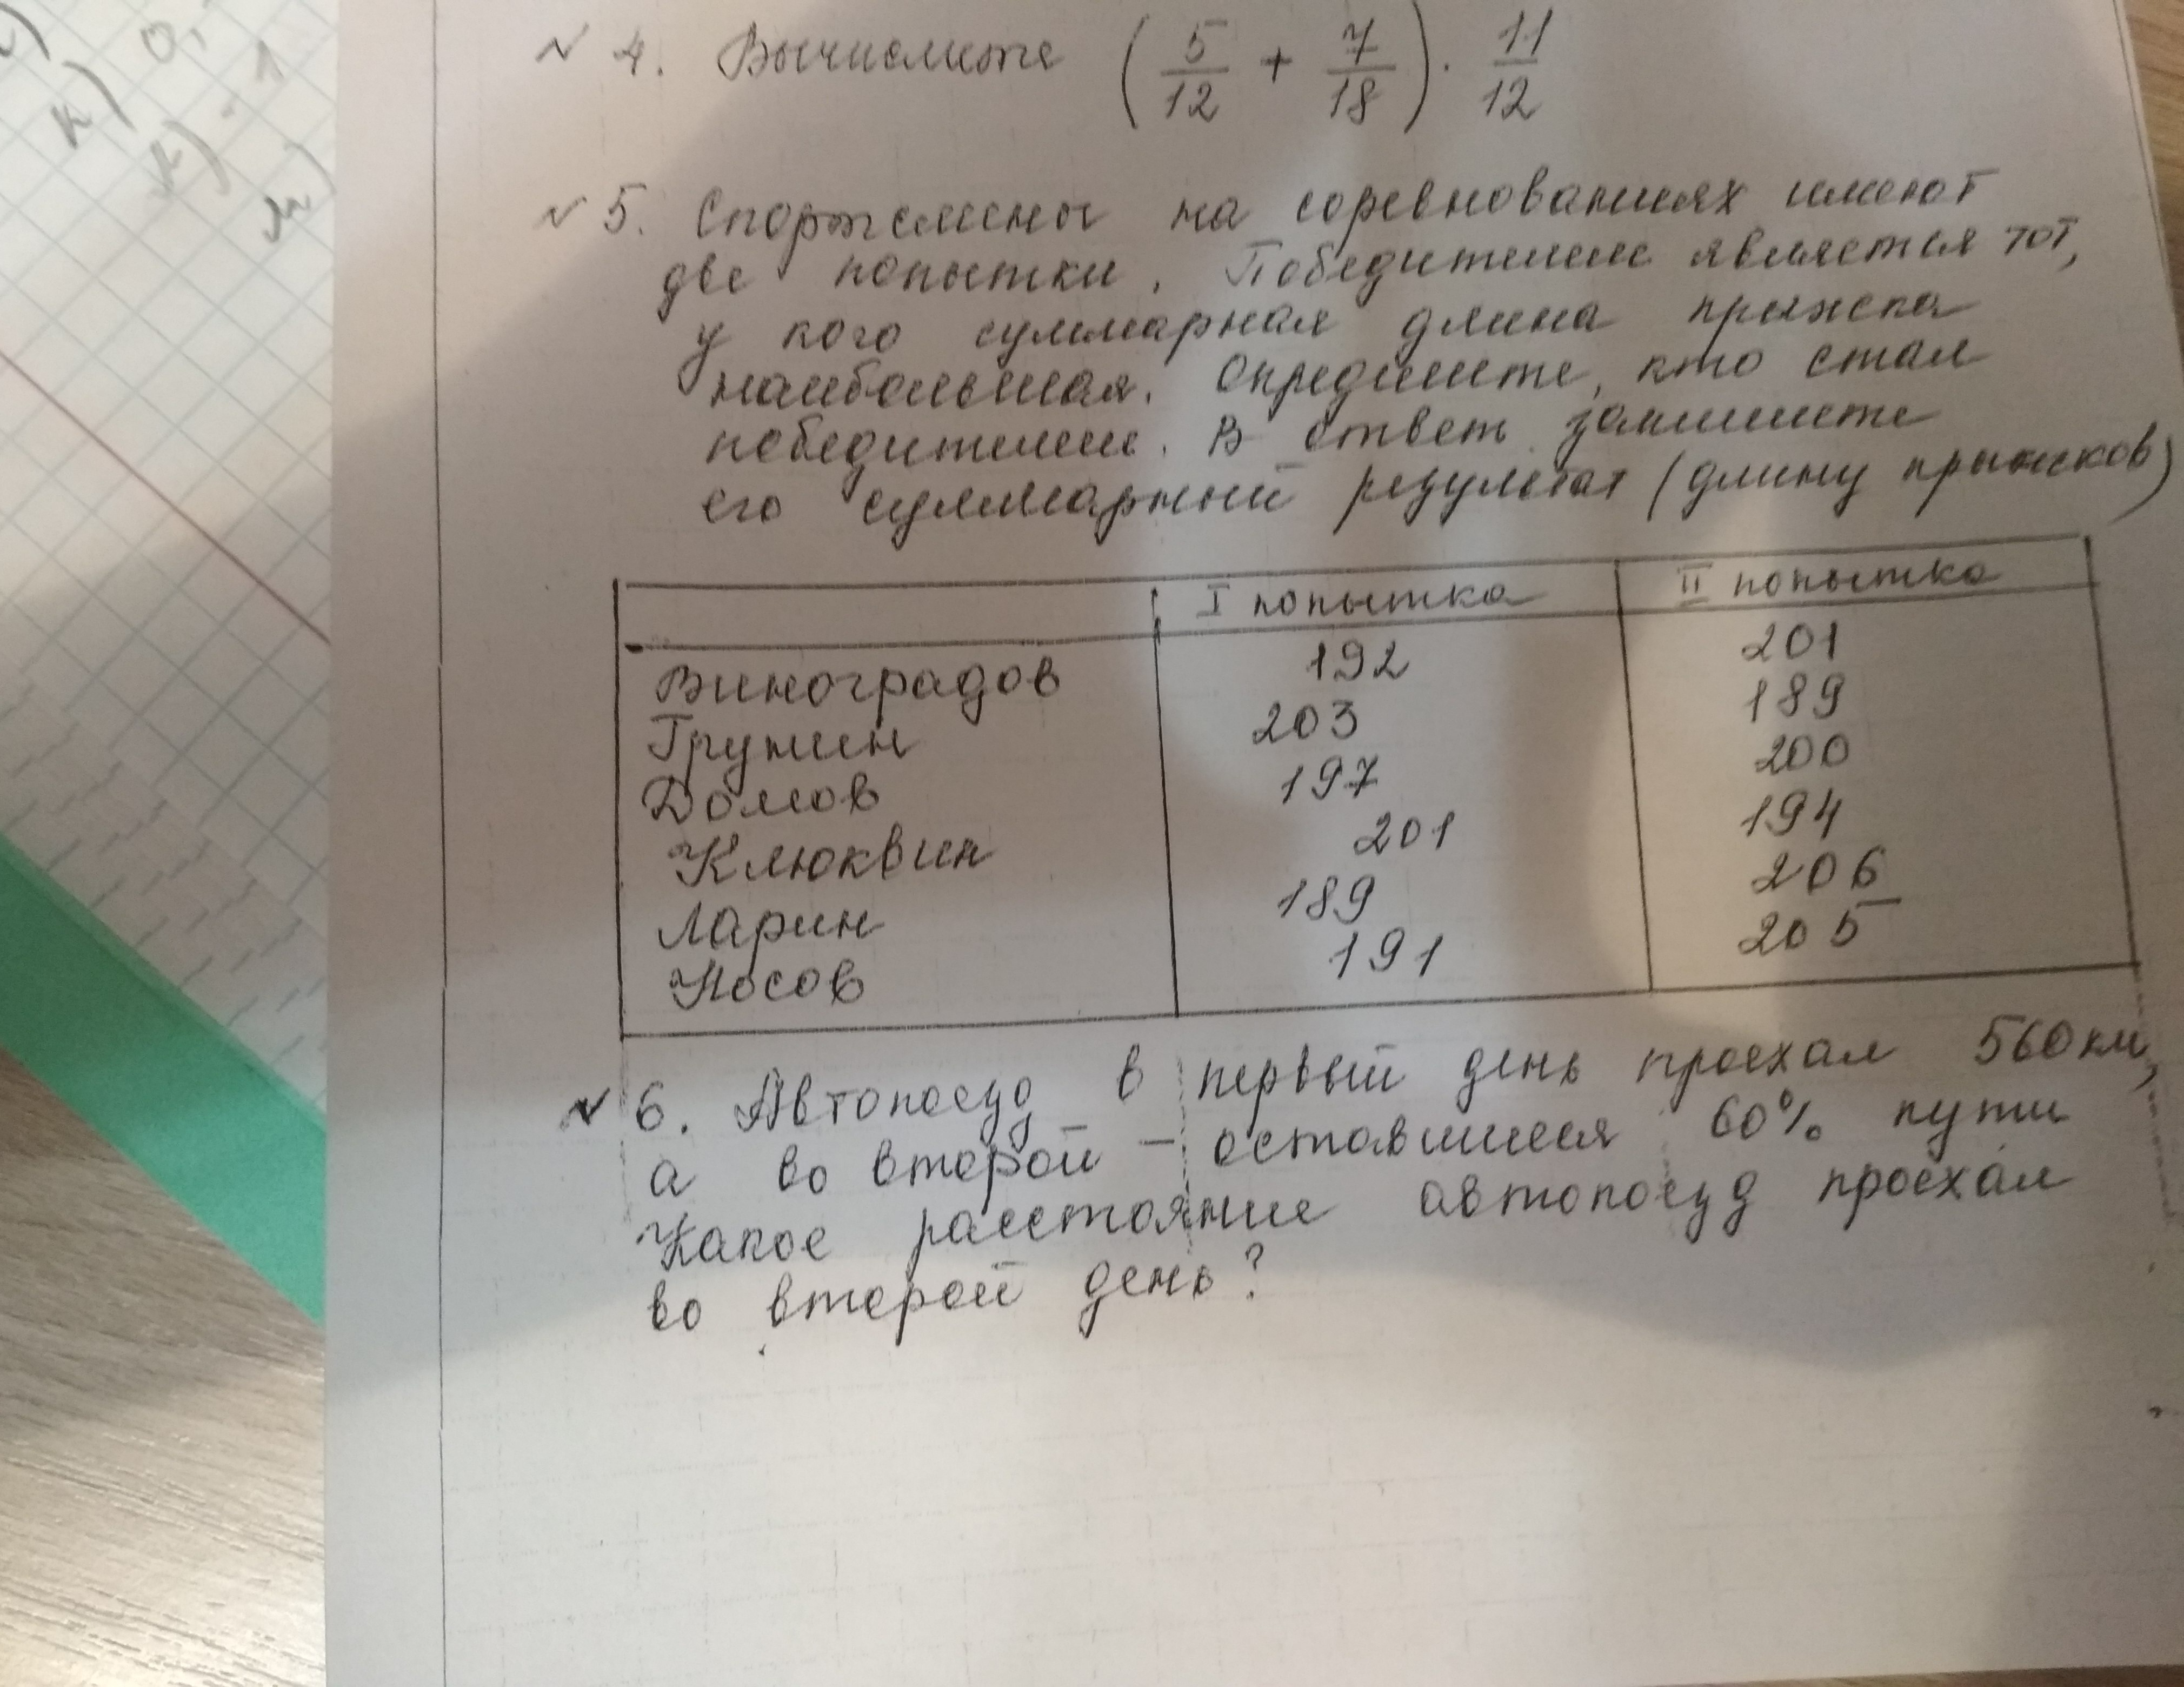 № 4. Вычислите (5/12 + 7/18) · 11/12
№ 5. Спортсмены на соревнованиях имеют
две попытки. Победителем является тот,
у кого суммарная длина прыжка
наибольшая. Определите, кто стал
победителем. В ответ запишите
его суммарный результат (длину прыжков)
I попытка II попытка
Виноградов 192 201
Грушин 203 189
Домов 197 200
Клюквин 201 194
Ларин 189 206
Носов 191 205
№ 6. Автопоезд в первый день проехал 560 км,
а во второй – оставшиеся 60% пути
Какое расстояние автопоезд проехал
во второй день?
к)